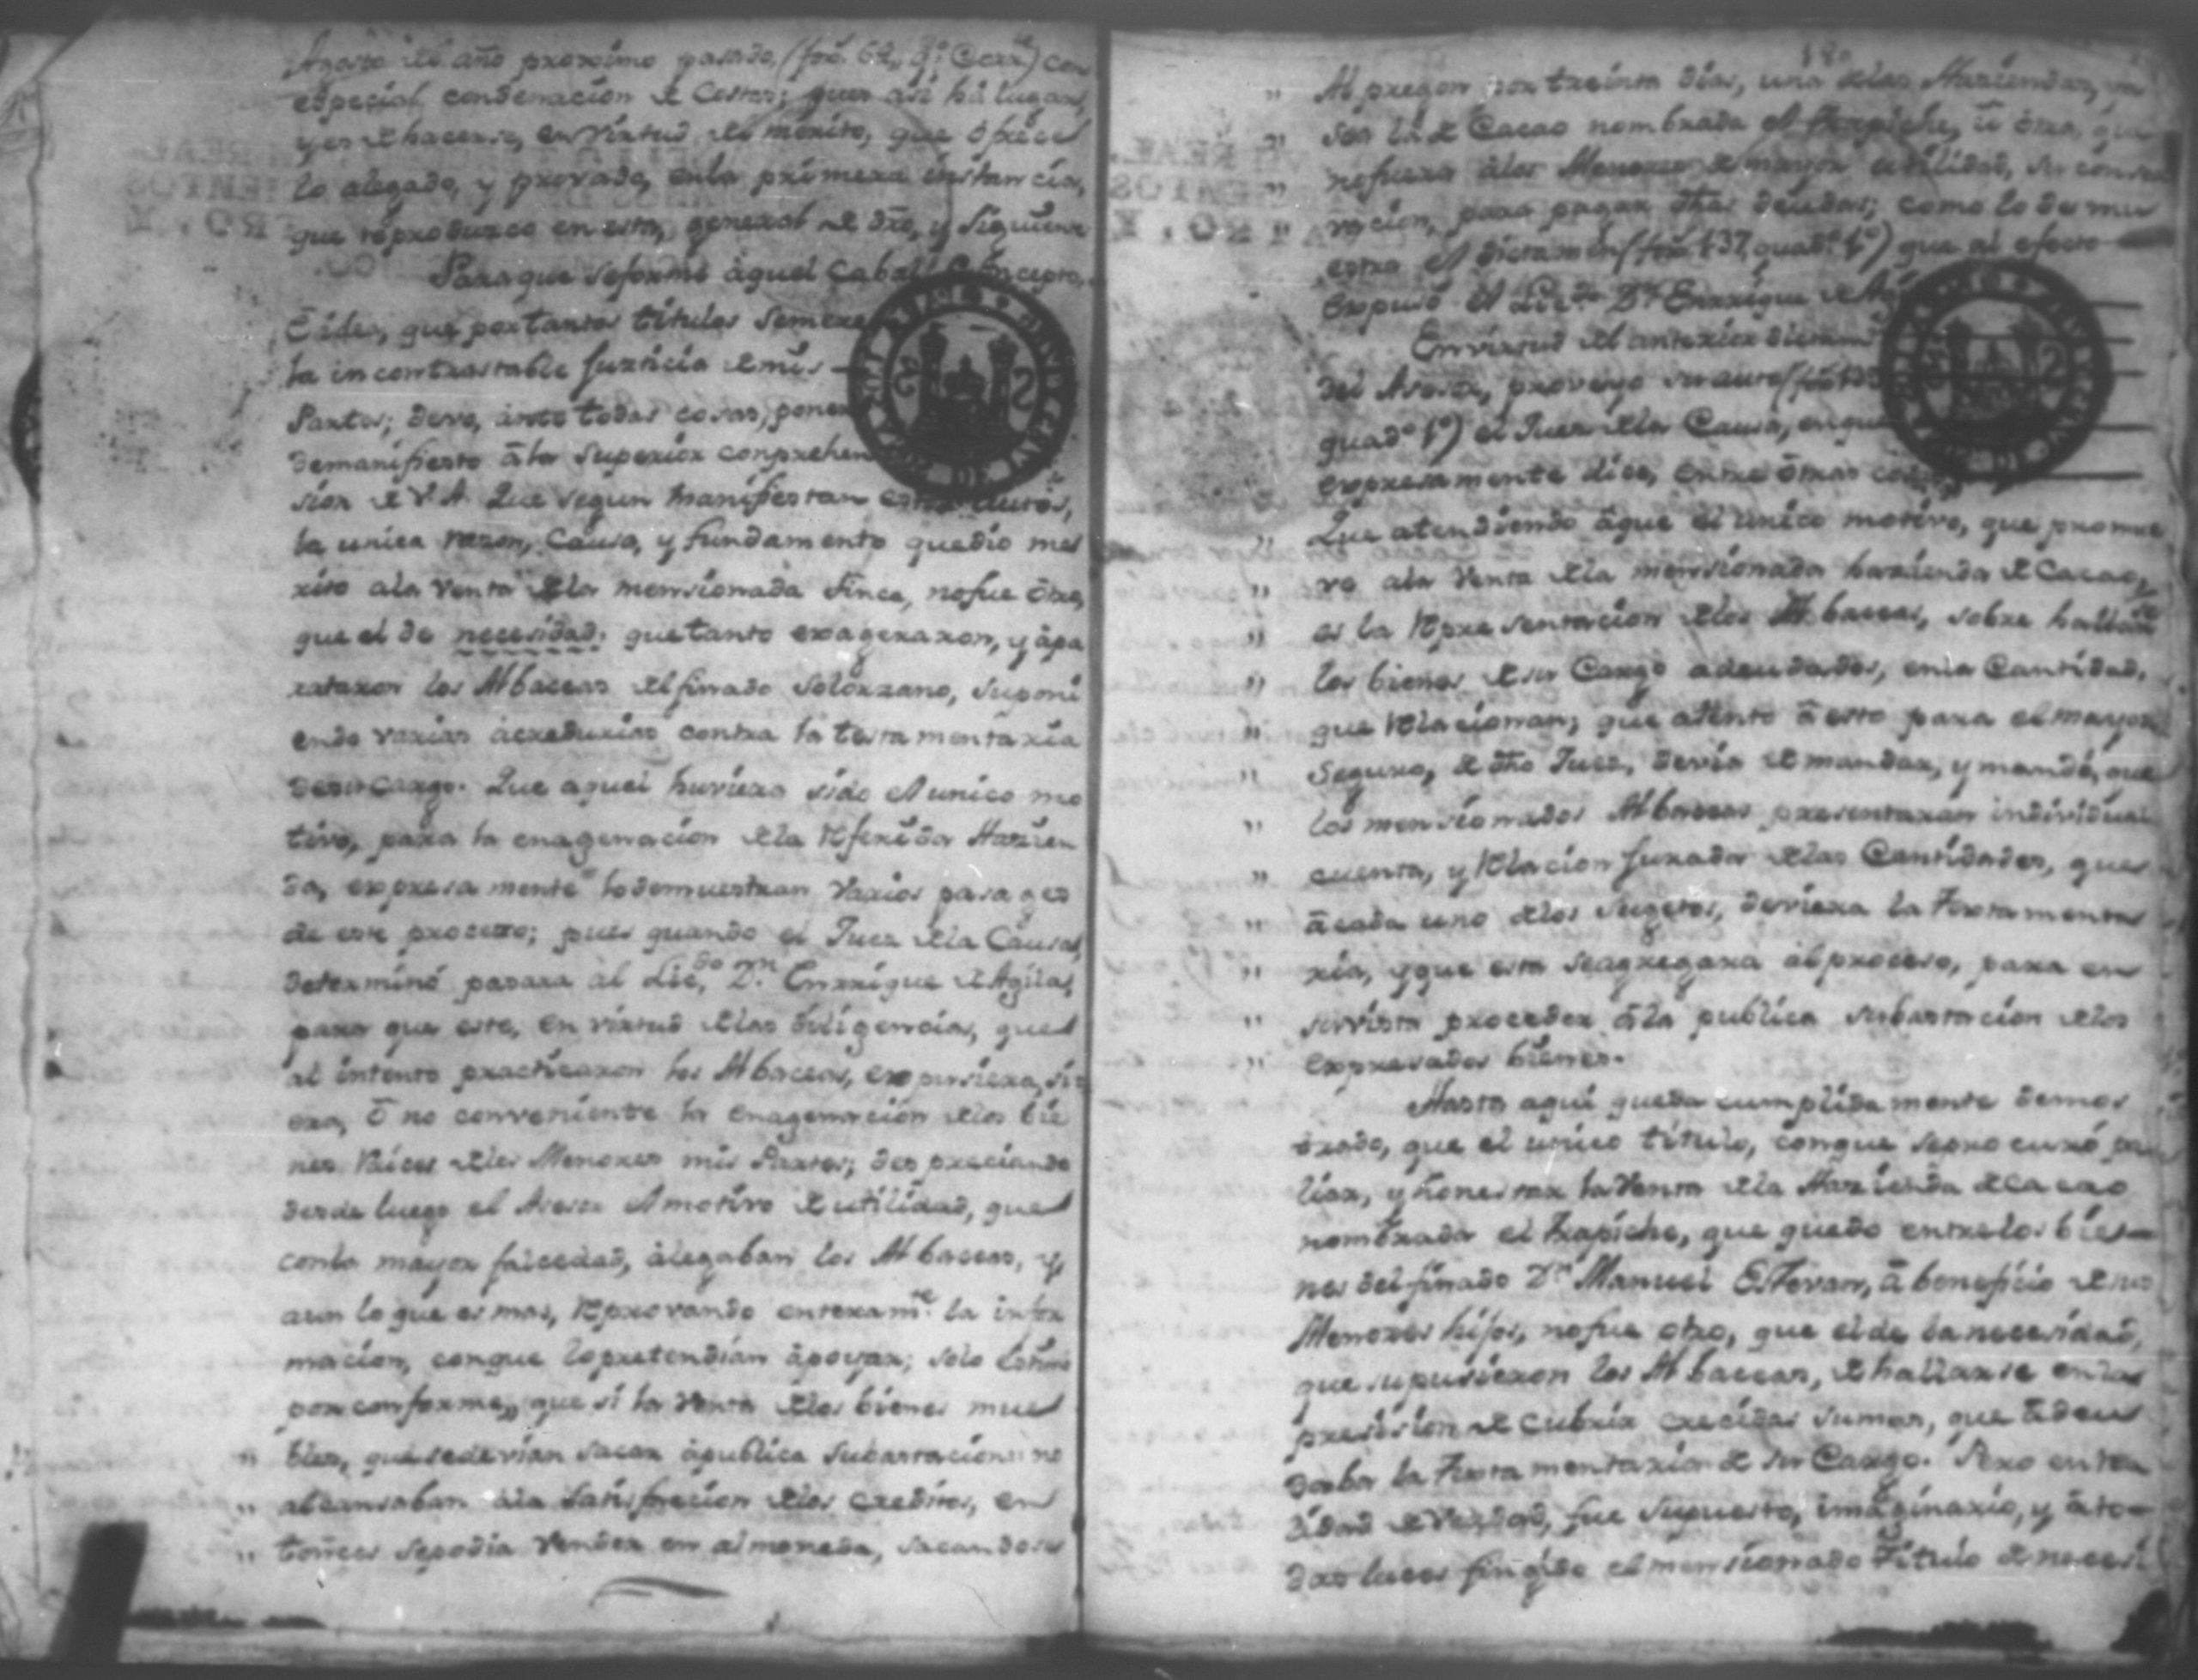 Agosto del año proximo pasado, (fox. 62,, q.ᵉ Corr.ᵉ) con
especial condenacion de Costas; pues asi há lugar,
y es de hacerse, en virtud del merito, que ofrece
lo alegado, y provado, en la primera instancia,
que reproduzco en esta, general de dro, y siguiente
Para que se forme aquel Cabal Concepto,
é idea, que por tantos titulos se merece
la incontrastable Justicia de mis
Partes; devo, ante todas cosas, poner
de manifiesto â la Superior comprehen
sion de V. A. Que segun manifiestan estos autos,
la unica razon, Causa, y fundamento que dio me
rito a la Venta de la mensionada finca, no fue otro,
que el de necesidad, que tanto exageraron, y apa
rataron los Albaceas del finado Solorzano, suponi
endo varias acredurias contra la testamentaria
de su cargo. Que aquel huviera sido el unico mo
tivo, para la enagenacion de la referida Hazien
da, expresamente lo demuestran varios pasages
de este proceso; pues quando el Juez de la Causa,
determinó pasara al Lic.ᵈᵒ D.ⁿ Enrrique de Agilar,
para que este, en virtud de las diligencias, que
al intento practicaron los Albaceas, expusiera, si
era, ô no conveniente la enagenacion de los bie
nes raices de los Menores mis Partes; despreciando
desde luego el Asesor el motivo de utilidad, que
con la mayor falcedad, alegaban los Albaceas, y
aun lo que es mas, reprovando enteram.ᵗᵉ la infor
macion, con que lo pretendian apoyar; solo estimó
por conforme,, que si la venta de los bienes mue
" bles, que se devian sacar a publica subastacion no
" alcansaban a la satisfaccion de los creditos, en
" tonces se podia vender en almoneda, sacandose
" Al pregon por treinta dias, una de las Haziendas, ya
" sea la de Cacao nombrada el Trapiche, û otra, que
" no fuera a los Menores de mayor utilidad, su conser
vacion, para pagar dhas deudas; como lo demu
estra el dictamen (fox. 137, quad.º 1.º) que al efecto
expuso el Lic.ᵈᵒ D.ⁿ Enrrique de
En virtud del anterior dictam
del Asesor, proveyo su auto (fox.
quad.º 1.º) el Juez de la Causa, en que
expresamente dice, entre otras cosas
" Que atendiendo âque el unico motivo, que promue
" ve a la Venta de la mensionada hazienda de Cacao,
" es la representacion de los Albaceas, sobre hallarse
" los bienes de su Cargo adeudados, en la Cantidad,
" que relacionan; que atento â esto para el mayor
" Seguro, de dho Juez, devia de mandar, y mandó, que
" los mensionados Albaceas presentaran individual
" cuenta, y relacion jurada de las Cantidades, que
" â cada uno de los sugetos, deviera la Testamenta
" ria, y que esta se agregara al proceso, para en
" su vista proceder â la publica subastacion de los
" expresados bienes.
Hasta aqui queda cumplidamente demos
trado, que el unico titulo, con que se procuró pa
liar, y honestar la Venta de la Hazienda de cacao
nombrada el Trapiche, que quedó entre los bie
nes del finado D.ⁿ Manuel Estevan, â beneficio de sus
Menores hijos, no fue otro, que el de la necesidad,
que supusieron los Albaceas, de hallarse en la
presision de cubrir crecidas sumas, que adeu
daba la Testamentaria de su Cargo. Pero en rea
lidad de verdad, fue supuesto, imaginario, y â to
das luces fingido el mensionado Titulo de necesi